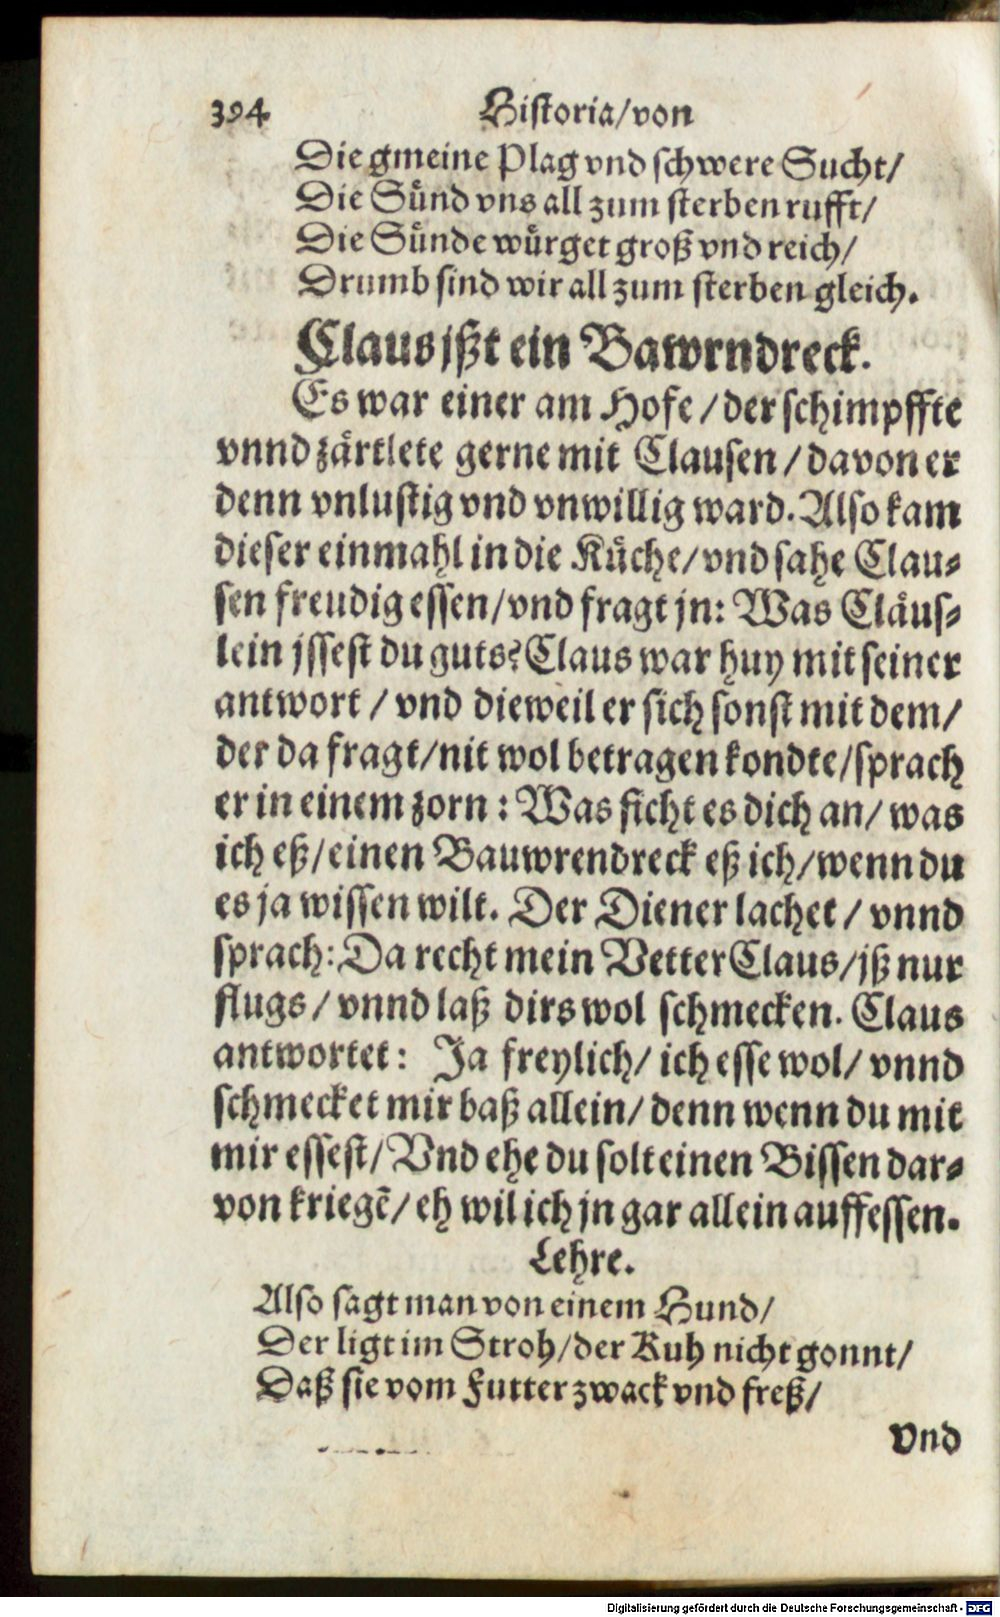 394 Historia/von
Die gmeine Plag vnd schwere Sucht/
Die Sünd vns all zum sterben rufft/
Die Sünde würget groß vnd reich/
Drumb sind wir all zum sterben gleich.
Claus jßt ein Bawrndreck.
Es war einer am Hofe/der schimpffte
vnnd zärtlete gerne mit Clausen/davon er
denn vnlustig vnd vnwillig ward. Also kam
dieser einmahl in die Küche/vnd sahe Clau-
sen freudig essen/vnd fragt jn: Was Cläus-
lein jssest du guts? Claus war huy mit seiner
antwort/vnd dieweil er sich sonst mit dem/
der da fragt/nit wol betragen kondte/sprach
er in einem zorn: Was ficht es dich an/was
ich eß/einen Bauwrendreck eß ich/wenn du
es ja wissen wilt. Der Diener lachet/vnnd
sprach: Da recht mein Vetter Claus/jß nur
flugs/vnnd laß dirs wol schmecken. Claus
antwortet: Ja freylich/ich esse wol/vnnd
schmecket mir baß allein/denn wenn du mit
mir essest/Vnd ehe du solt einen Bissen dar-
von kriegē/eh wil ich jn gar allein auffessen.
Lehre.
Also sagt man von einem Hund/
Der ligt im Stroh/der Kuh nicht gonnt/
Daß sie vom Futter zwack vnd freß/
Vnd
Digitalisierung gefördert durch die Deutsche Forschungsgemeinschaft - DFG